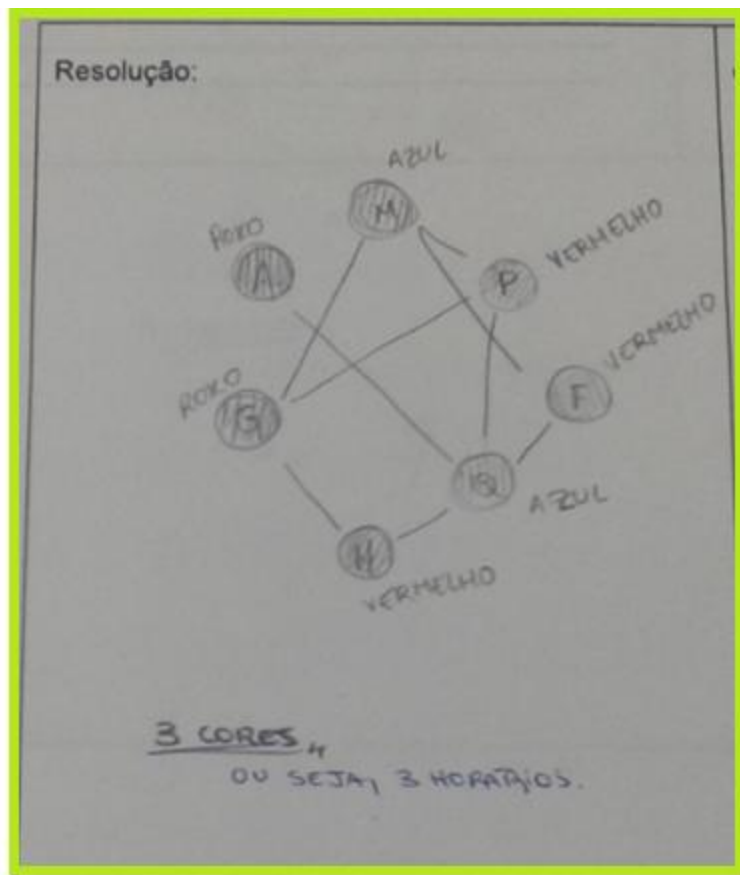 Resolução:
AZUL
M
ROXO
A
P
VERMELHO
VERMELHO
F
ROXO
G
AZUL
H
VERMELHO
3 CORES,,
OU SEJA, 3 HORARIOS.